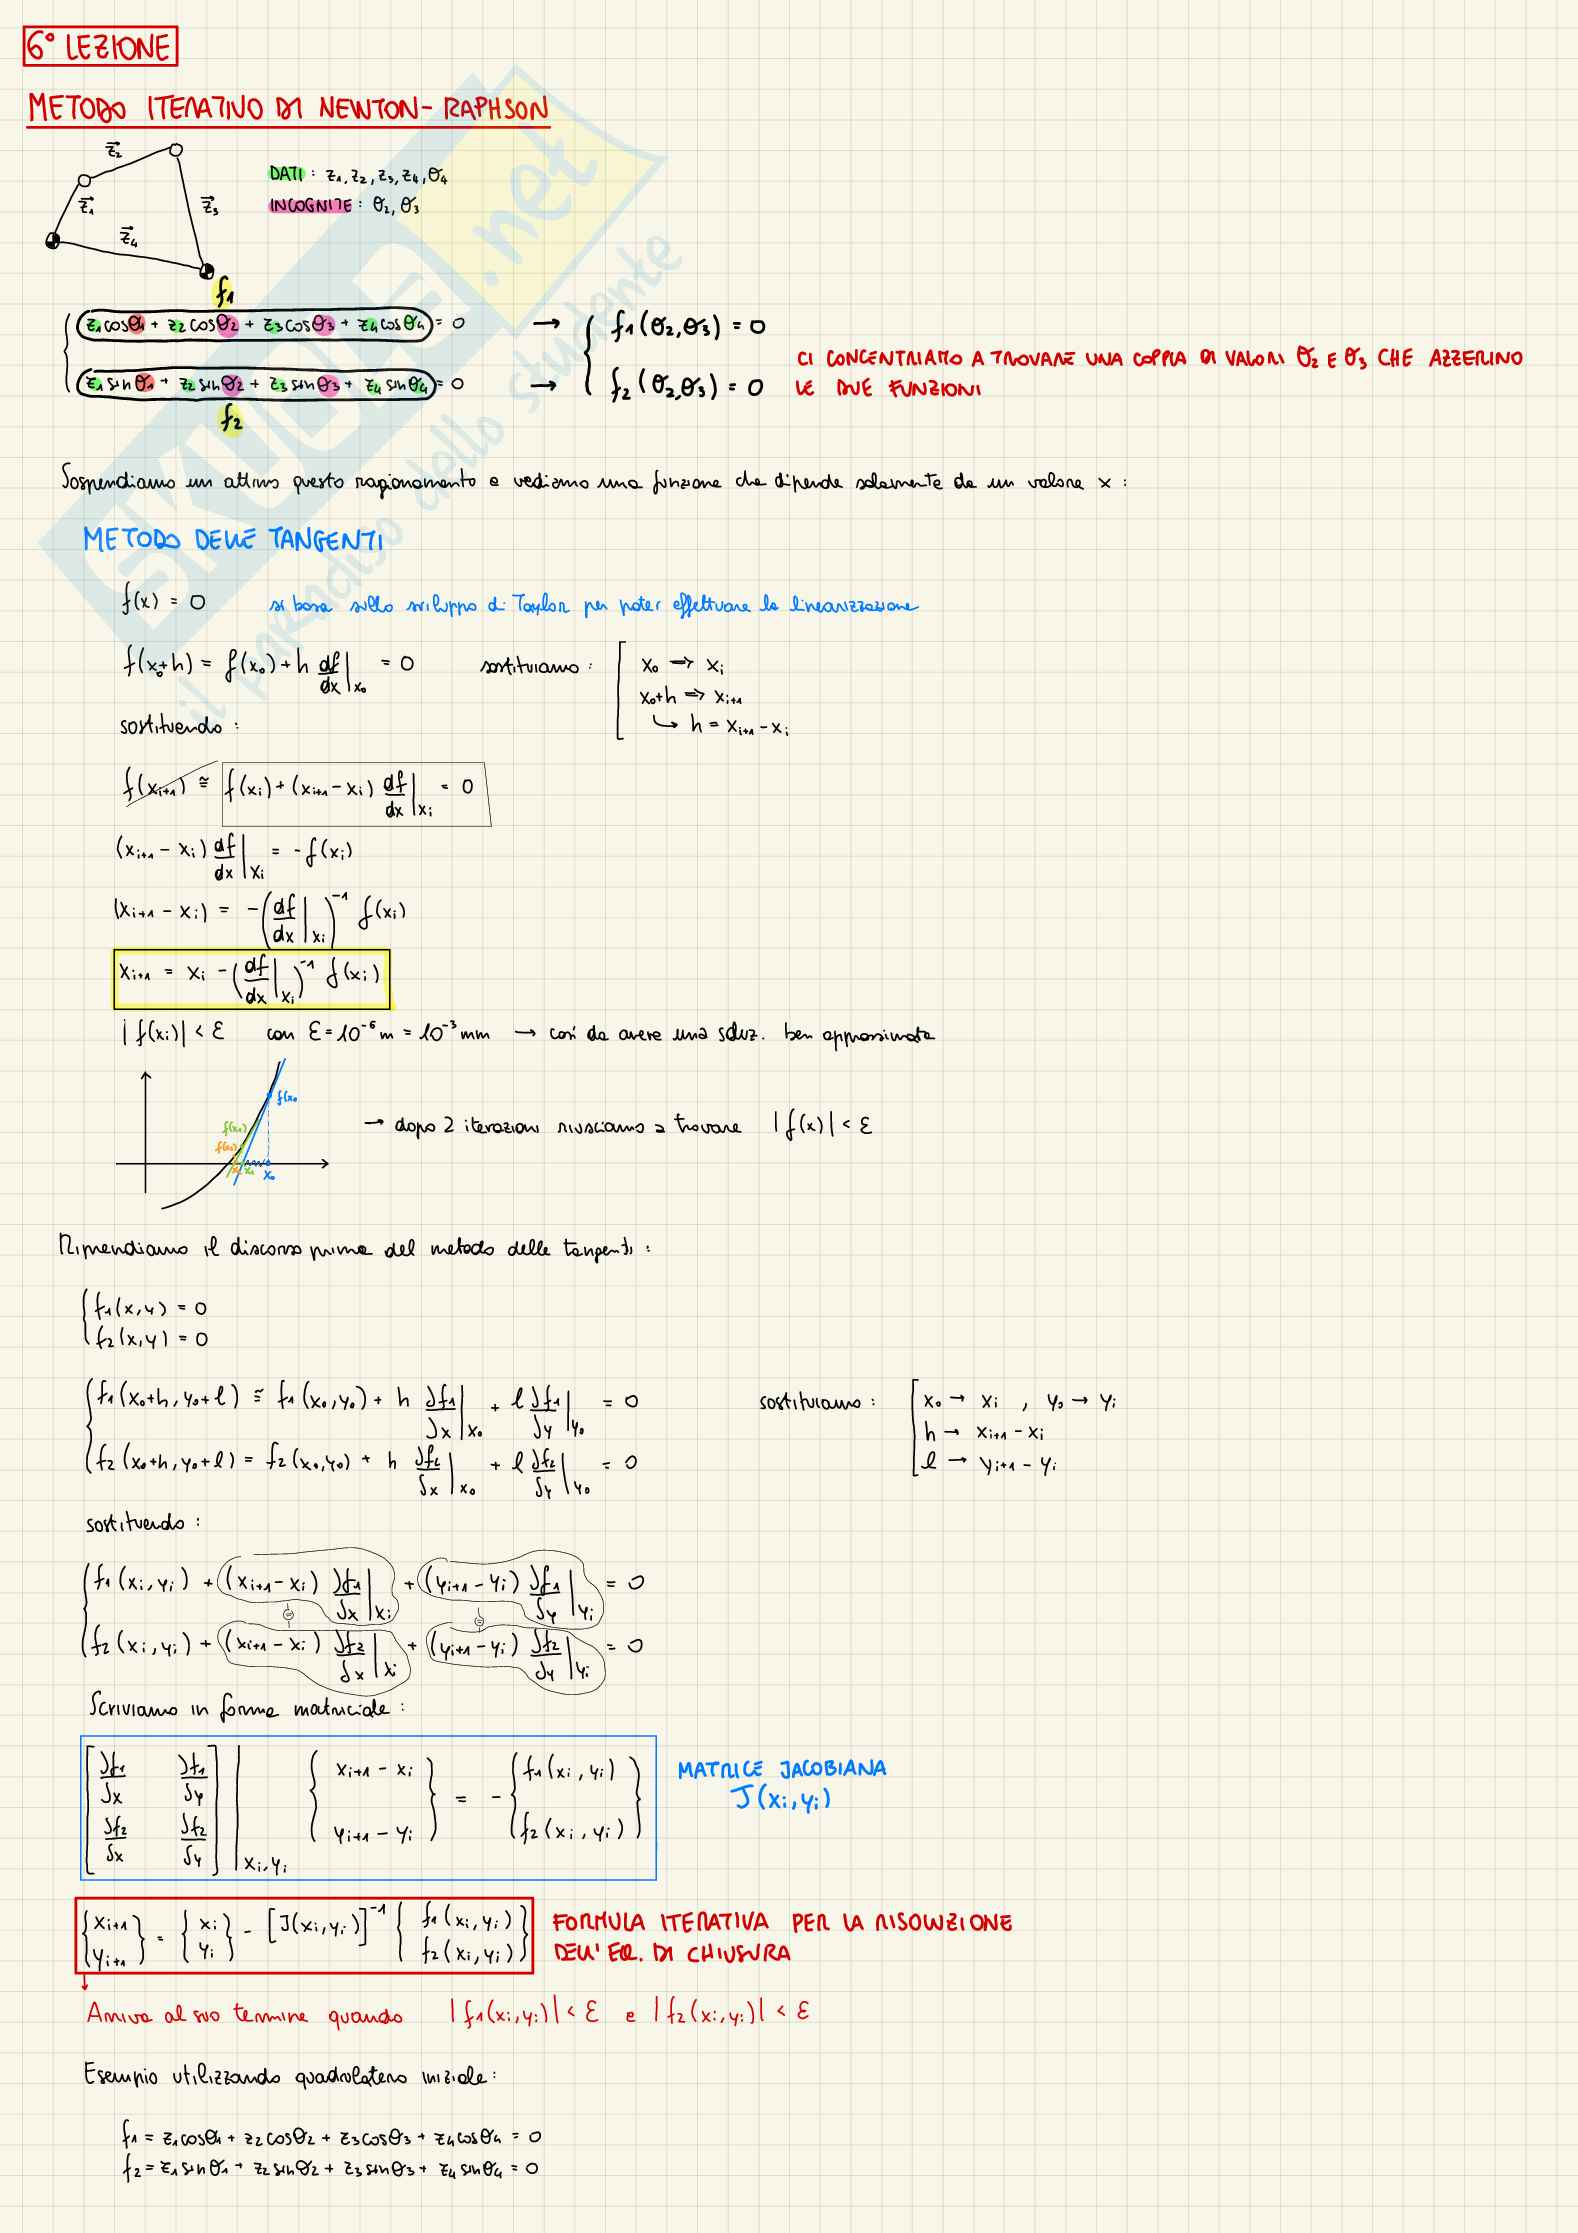 6° LEZIONE
METODO ITERATIVO DI NEWTON-RAPHSON
z⃗2
z⃗1
z⃗3
z⃗4
DATI : z1, z2, z3, z4, θ4
INCOGNITE : θ2, θ3
f1
z1 cosθ1 + z2 cosθ2 + z3 cosθ3 + z4 cosθ4 = 0 → { f1(θ2,θ3) = 0
z1 sinθ1 + z2 sinθ2 + z3 sinθ3 + z4 sinθ4 = 0 → { f2(θ2,θ3) = 0
f2
CI CONCENTRIAMO A TROVARE UNA COPPIA DI VALORI θ2 E θ3 CHE AZZERINO
LE DUE FUNZIONI
Sospendiamo un attimo questo ragionamento e vediamo una funzione che dipende solamente da un valore x :
METODO DELLE TANGENTI
f(x) = 0 si basa sullo sviluppo di Taylor per poter effettuare la linearizzazione
f(x0+h) = f(x0) + h df/dx|x0 = 0 sostituiamo : [ x0 ⇒ xi
x0+h ⇒ xi+1
↳ h = xi+1 - xi
sostituendo :
f(xi+1) ≅ f(xi) + (xi+1 - xi) df/dx|xi = 0
(xi+1 - xi) df/dx|xi = - f(xi)
(xi+1 - xi) = -(df/dx|xi)^-1 f(xi)
xi+1 = xi - (df/dx|xi)^-1 f(xi)
|f(xi)| < ε con ε = 10^-6 m = 10^-3 mm → così da avere una soluz. ben approssimata
f(x0
f(x1)
f(x2)
x2 x1 x0
→ dopo 2 iterazioni riusciamo a trovare |f(x)| < ε
Riprendiamo il discorso prima del metodo delle tangenti :
{ f1(x,y) = 0
f2(x,y) = 0
{ f1(x0+h, y0+l) ≅ f1(x0,y0) + h ∂f1/∂x|x0 + l ∂f1/∂y|y0 = 0
f2(x0+h, y0+l) = f2(x0,y0) + h ∂f2/∂x|x0 + l ∂f2/∂y|y0 = 0
sostituiamo : [ x0 → xi , y0 → yi
h → xi+1 - xi
l → yi+1 - yi
sostituendo :
{ f1(xi,yi) + (xi+1 - xi) ∂f1/∂x|xi + (yi+1 - yi) ∂f1/∂y|yi = 0
= =
f2(xi,yi) + (xi+1 - xi) ∂f2/∂x|xi + (yi+1 - yi) ∂f2/∂y|yi = 0
Scriviamo in forma matriciale :
[ ∂f1/∂x ∂f1/∂y ] { xi+1 - xi } = - { f1(xi,yi) }
[ ∂f2/∂x ∂f2/∂y ]|xi,yi { yi+1 - yi } { f2(xi,yi) }
MATRICE JACOBIANA
J(xi,yi)
{ xi+1 } = { xi } - [J(xi,yi)]^-1 { f1(xi,yi) }
{ yi+1 } { yi } { f2(xi,yi) }
FORMULA ITERATIVA PER LA RISOLUZIONE
DELL'EQ. DI CHIUSURA
Arriva al suo termine quando |f1(xi,yi)| < ε e |f2(xi,yi)| < ε
Esempio utilizzando quadrilatero iniziale :
f1 = z1 cosθ1 + z2 cosθ2 + z3 cosθ3 + z4 cosθ4 = 0
f2 = z1 sinθ1 + z2 sinθ2 + z3 sinθ3 + z4 sinθ4 = 0
SKUOLA.net
il paradiso dello studente